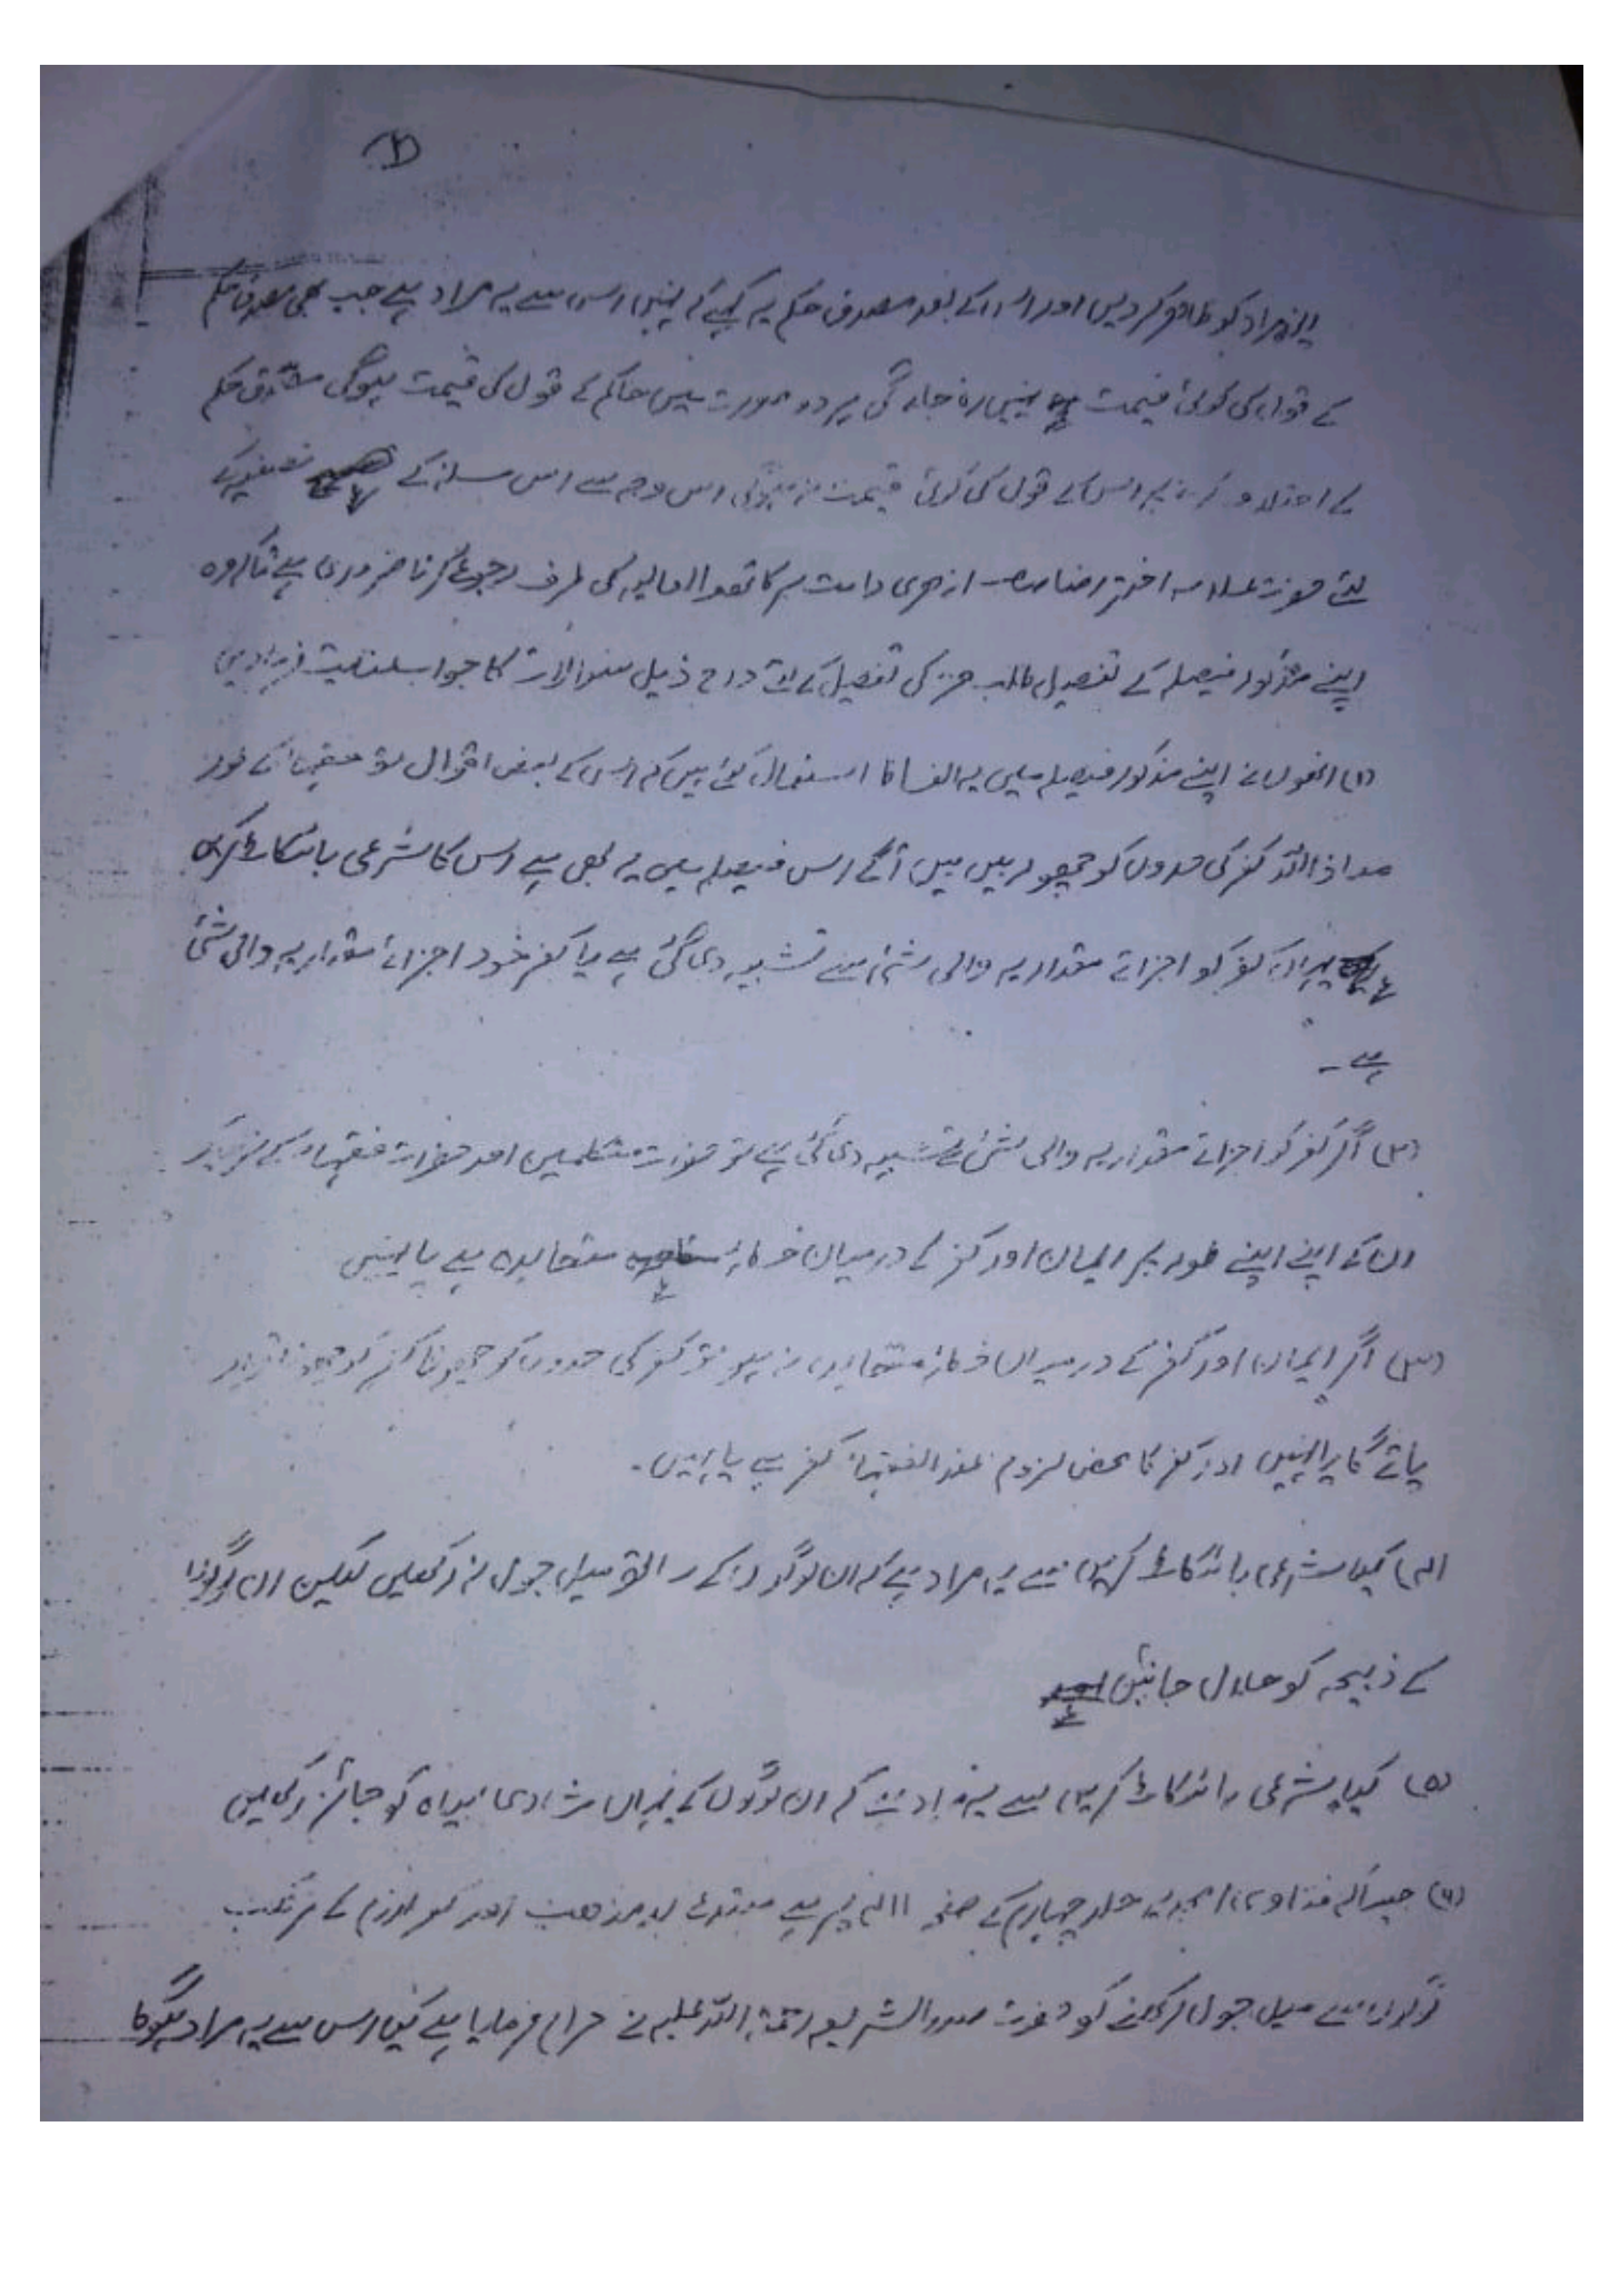 کو ظاہر کردیں اور اس کے بعد مصدق حکم یہ کہے کہ نہیں اس سے یہ مراد ہے جب بھی مصدق حکم
کے قول کی کوئی قیمت نہیں رہ جائے گی ہر دو صورت میں حاکم کے قول کی قیمت ہوگی مصدق حکم
کے اس کے قول کی کوئی قیمت نہ ہوگی اس وجہ سے اس مسئلہ کے تصفیہ کے
لئے حضرت علامہ اختر رضا صاحب ازھری دامت برکاتھم العالیہ کی طرف رجوع کرنا ضروری ہے تاکہ وہ
اپنے مذکور فیصلہ کے تفصیل طلب جز کی تفصیل کے لئے درج ذیل سوالات کا جواب عنایت فرمادیں
(۱) انھوں نے اپنے مذکور فیصلہ میں یہ الفاظ استعمال کئے ہیں کہ اس کے بعض اقوال تو فقہاء کے طور
معاذ اللہ کفر کی حدوں کو چھو رہیں ہیں آگے اس فیصلہ میں یہ بھی ہے اس کا شرعی بائیکاٹ کریں
یہاں کفر کو اجزائے مقداریہ والی شئ سے تشبیہ دی گئی ہے یا کفر خود اجزائے مقداریہ والی شئ
ہے ۔
(۲) اگر کفر کو اجزائے مقداریہ والی شئ سے تشبیہ دی گئی ہے تو حضرات متکلمین اور حضرات فقہاء کے نزدیک
ان کے اپنے اپنے طور پر ایمان اور کفر کے درمیان متحابدہ ہے یا نہیں
(۳) اگر ایمان اور کفر کے درمیان نہ ہو تو کفر کی حدوں کو چھونا کفر کو چھونا قرار
پائے گا یا نہیں اور کفر کا محض لزوم عند الفقہاء کفر ہے یا نہیں ۔
(۴) کیا شرعی بائیکاٹ کریں سے یہ مراد ہے کہ ان لوگوں کے ساتھ میل جول نہ رکھیں لیکن ان لوگوں
کے ذبیحہ کو حلال جانیں
(۵) کیا شرعی بائیکاٹ کریں سے یہ مراد ہے کہ ان لوگوں کے یہاں شادی بیاہ کو جائز رکھیں
(۶) جیسا کہ فتاویٰ امجدیہ جلد چہارم کے صفحہ پر ہے مبتدع بد مذھب اور کفر لزوم کے مرتکب
لوگوں سے میل جول رکھنے کو حضرت صدر الشریعہ رحمۃ اللہ علیہ نے حرام فرمایا ہے کیا اس سے یہ مراد ہوگا